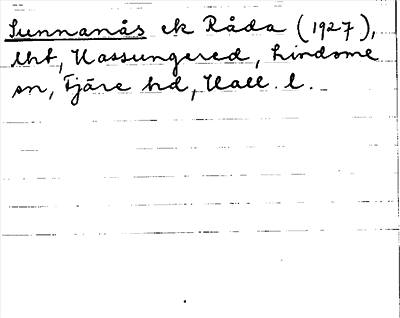 Sunnanås ek Råda (1927),
lht, Hassungered, Lindome
sn, Fjäre hd, Hall. l.